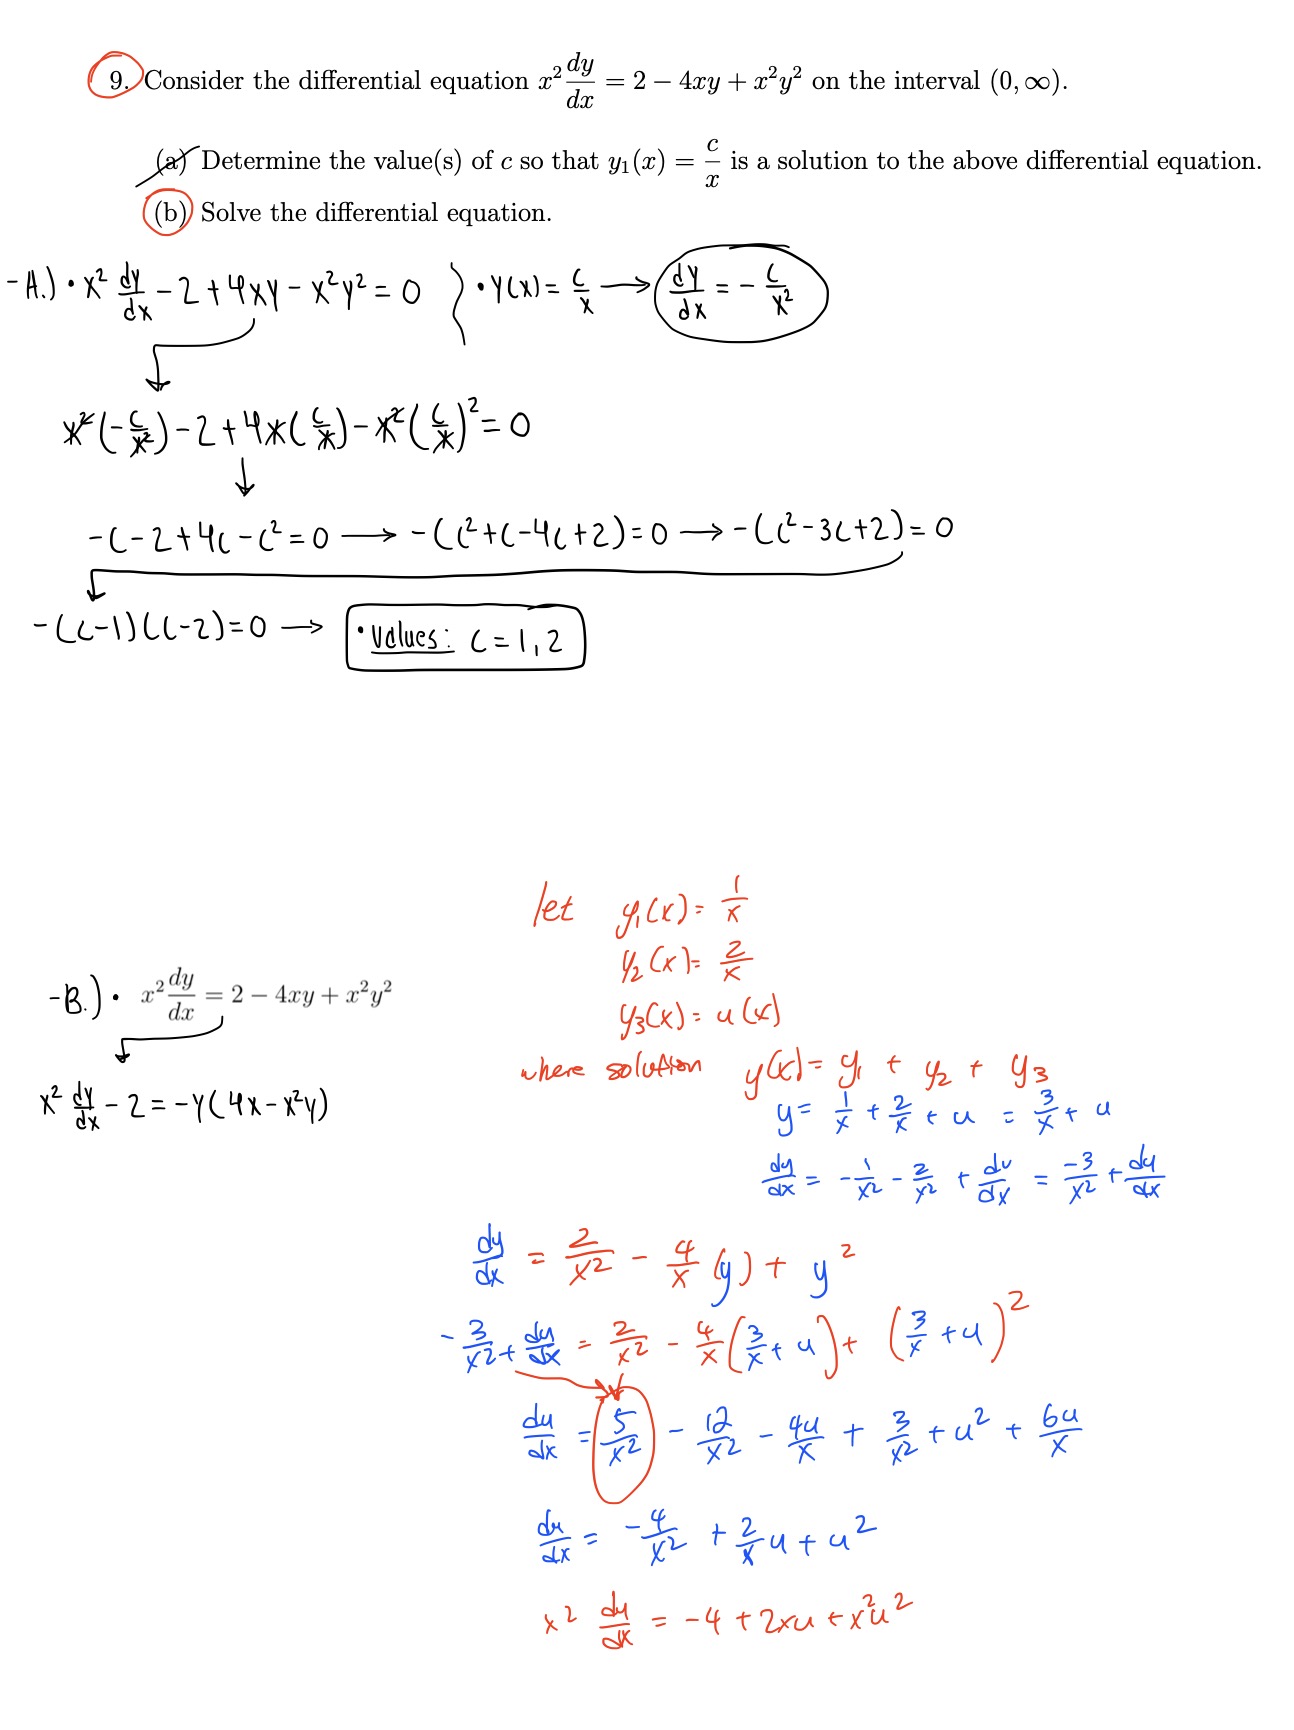 9. Consider the differential equation x² dy/dx = 2 − 4xy + x²y² on the interval (0, ∞).
(a) Determine the value(s) of c so that y₁(x) = c/x is a solution to the above differential equation.
(b) Solve the differential equation.
-A.) • x² dy/dx - 2 + 4xy - x²y² = 0 } • y(x) = c/x → dy/dx = - c/x²
x²(-c/x²) - 2 + 4x(c/x) - x²(c/x)² = 0
-c - 2 + 4c - c² = 0 → -(c² + c - 4c + 2) = 0 → -(c² - 3c + 2) = 0
-(c-1)(c-2) = 0 → • values: c = 1, 2
let y₁(x) = 1/x
y₂(x) = 2/x
y₃(x) = u(x)
where solution y(x) = y₁ + y₂ + y₃
-B.) • x² dy/dx = 2 − 4xy + x²y²
x² dy/dx - 2 = -y(4x - x²y)
y = 1/x + 2/x + u = 3/x + u
dy/dx = - 1/x² - 2/x² + du/dx = -3/x² + du/dx
dy/dx = 2/x² - 4/x (y) + y²
- 3/x² + du/dx = 2/x² - 4/x (3/x + u) + (3/x + u)²
du/dx = 5/x² - 12/x² - 4u/x + 3/x² + u² + 6u/x
du/dx = -4/x² + 2/x u + u²
x² du/dx = -4 + 2xu + x²u²